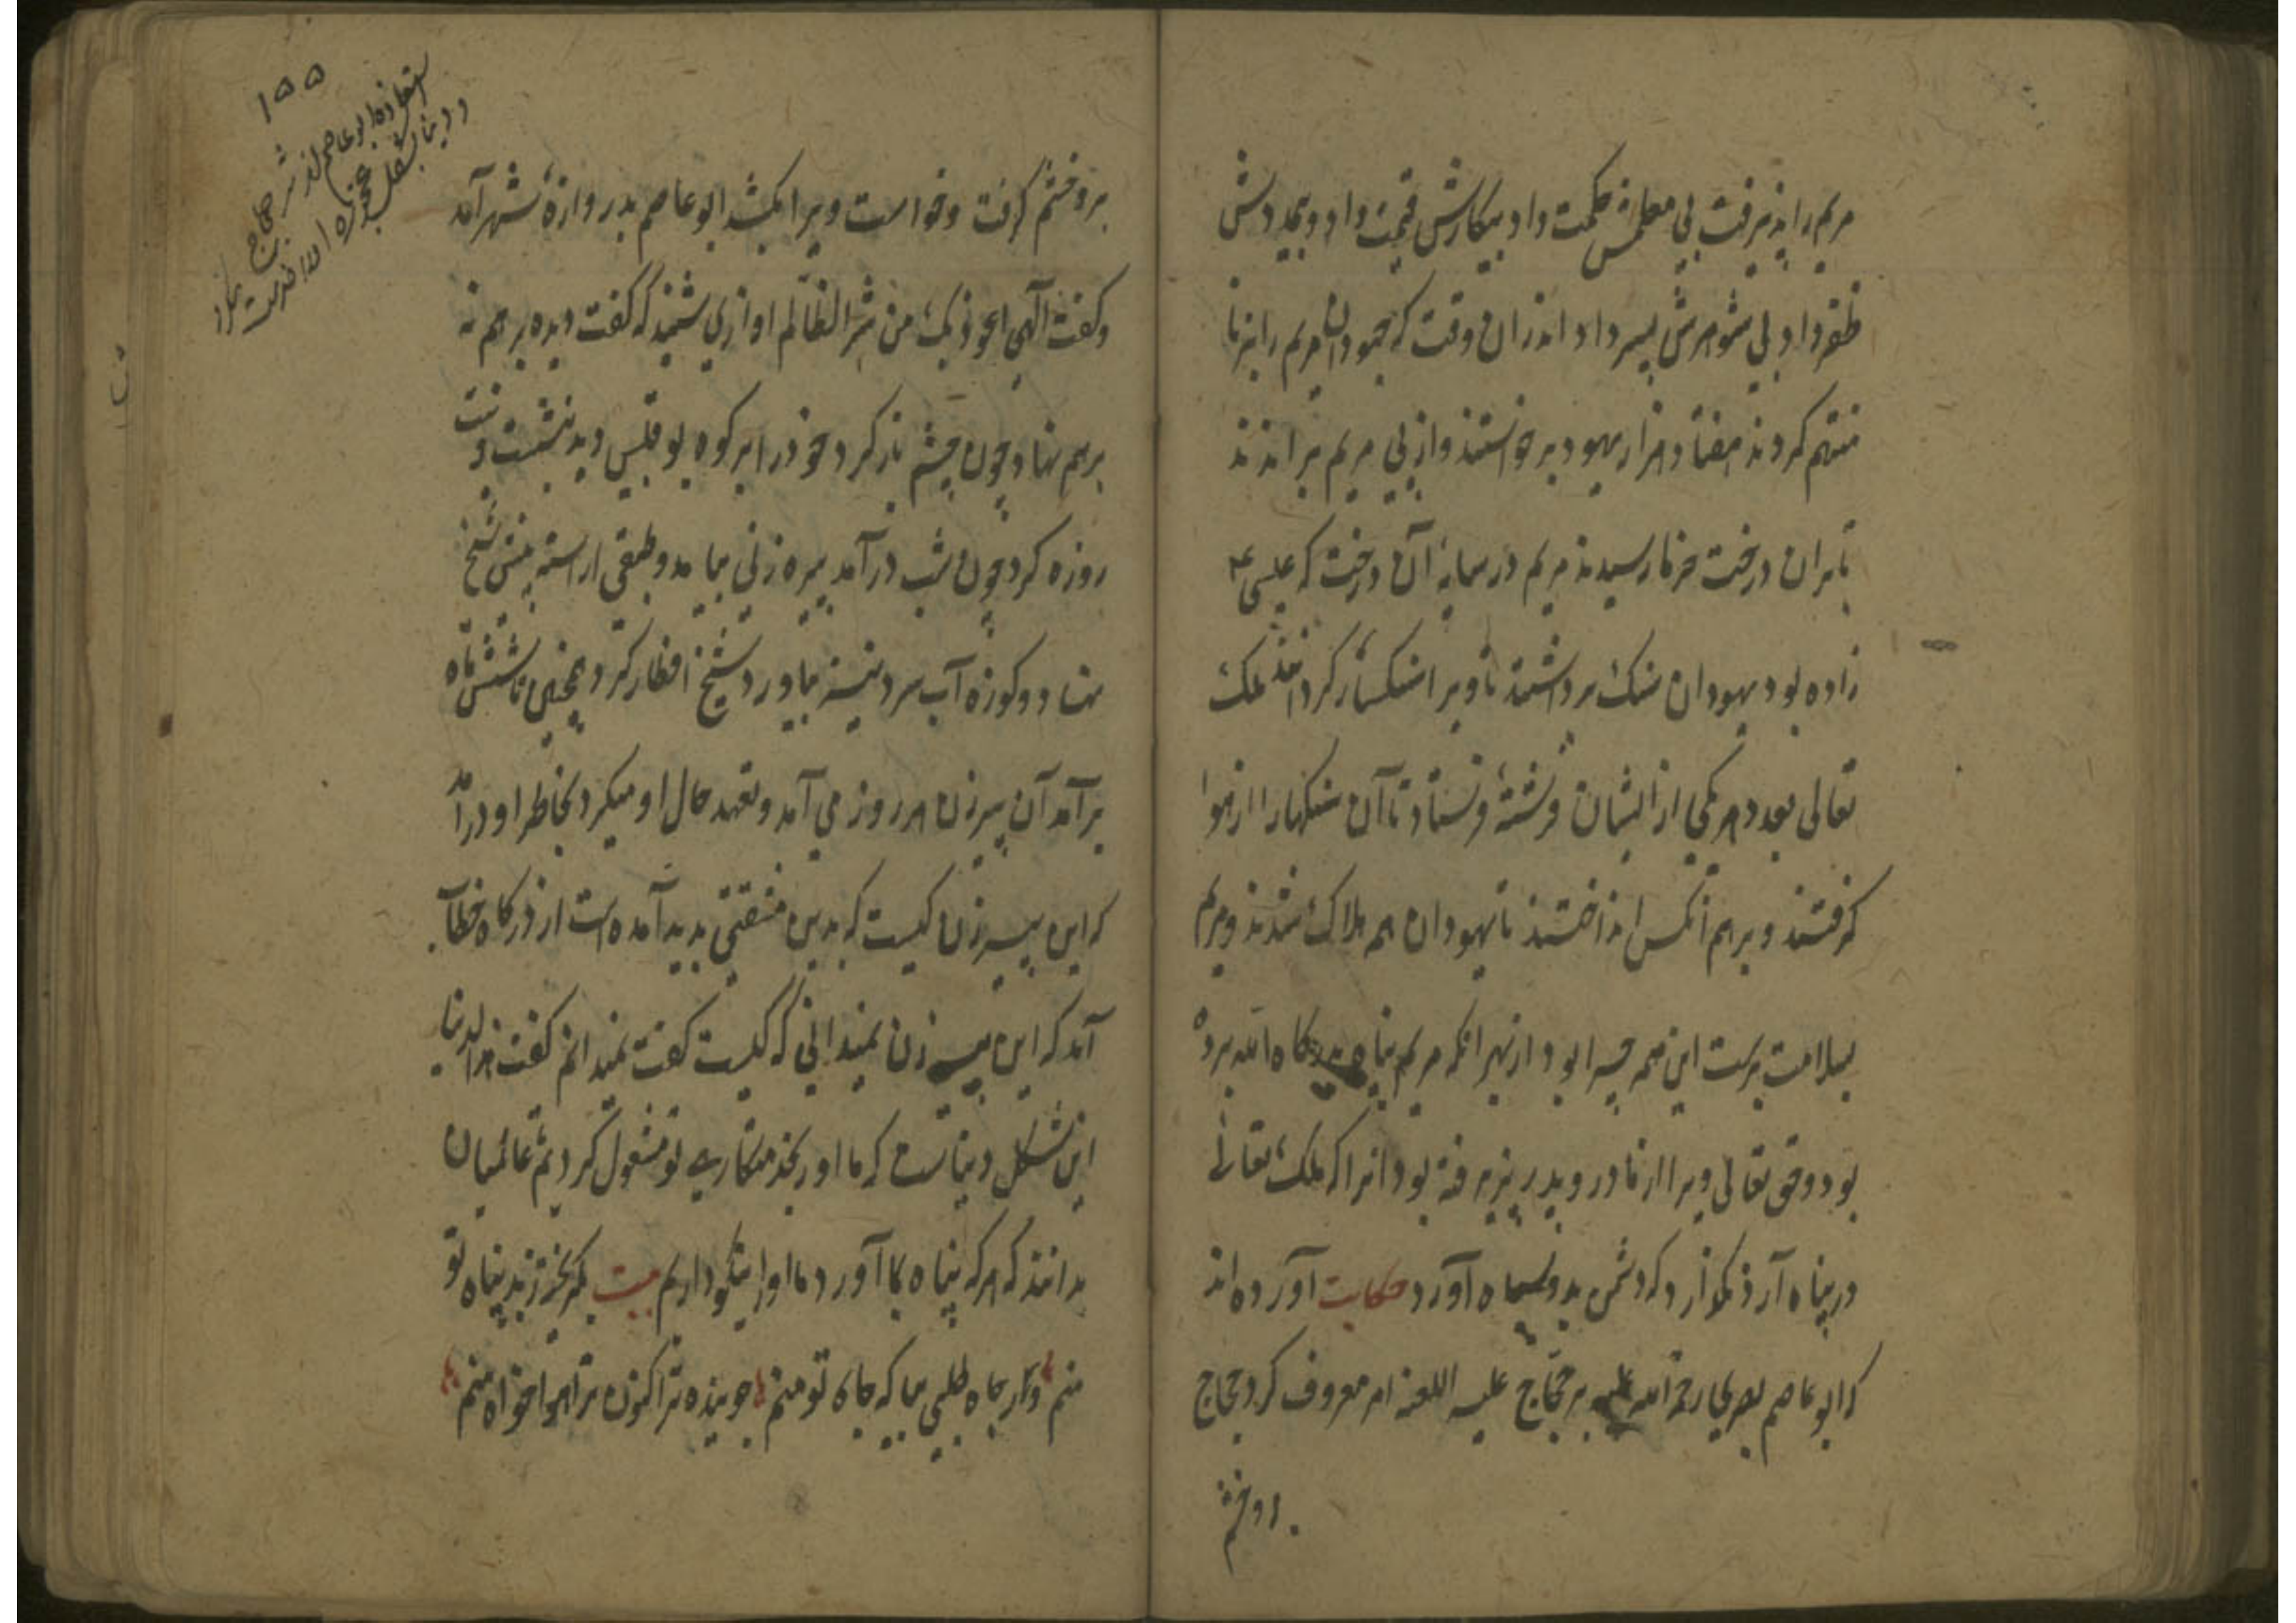 مریم را بپذیرفت بی معلمش حکمت داد بیکارش قیمت داد و بیمردش
ظفر داد بی شوهرش پسر داد اندران وقت که جهودان مریم را بزنا
متهم کردند هفتاد هزار یهود برخواستند و از پی مریم براندند
تا بران درخت خرما رسیدند مریم در سایه آن درخت که عیسی ع
زاده بود یهودان سنک برداشتند تا ویرا سنکسار کردانند ملک
تعالی بعدد هر یکی از ایشان فرشتهٔ فرستاد تا آن سنکها را از هوا
کرفتند و برهم آنکس انداختند تا یهودان همه هلاک شدند و مریم
بسلامت برست این همه چرا بود از بهر انکه مریم پناه بدرکاه الله برده
بود و حق تعالی ویرا از مادر و پدر پذیرفته بود انرا که ملک تعالی
در پناه آرد نکذارد که دشمن بدو سپاه آورد حکایت آورده اند
که ابو عاصم بصری رحمة الله علیه بر حجاج علیه اللعنه امر معروف کرد حجاج
برو خشم
۱۵۵
استعاذه ابو عاصم از شر حجاج
بروخشم کرفت و خواست ویرا بکشد ابو عاصم بدروازهٔ شهر آمد
و کفت آلهی اعوذ بک من شر الظالم اوازی شنید که کفت دیده برهم نه
برهم نهاد چون چشم باز کرد خود را بر کوه بو قبیس دید بنشست و نیت
روزه کرد چون شب درآمد پیره زنی بیامد و طبقی اراسته پیش شیخ
نهاد و کوزه آب سرد نیز بیاورد شیخ افطار کرد همچنین تا شش ماه
برآمد آن پیرزن هر روز می آمد و تعهد حال او میکرد بخاطر او درآمد
که این پیرزن کیست که بدین مشفقی پدید آمده است از درکاه خطاب
آمد که این پیرزن نمیدانی که کیست کفت نمیدانم کفت هذا الدنیا
این شکل دنیاست که ما او را بخدمتکاری تو مشغول کردیم تا عالمیان
بدانند که هر که پناه بما آورد ما او را نیکو داریم بیت کر بکریزی پناه تو
منم وار جاه طلبی بیا که جاه تو منم جوینده ترا کنون ترا هوا خواه منم